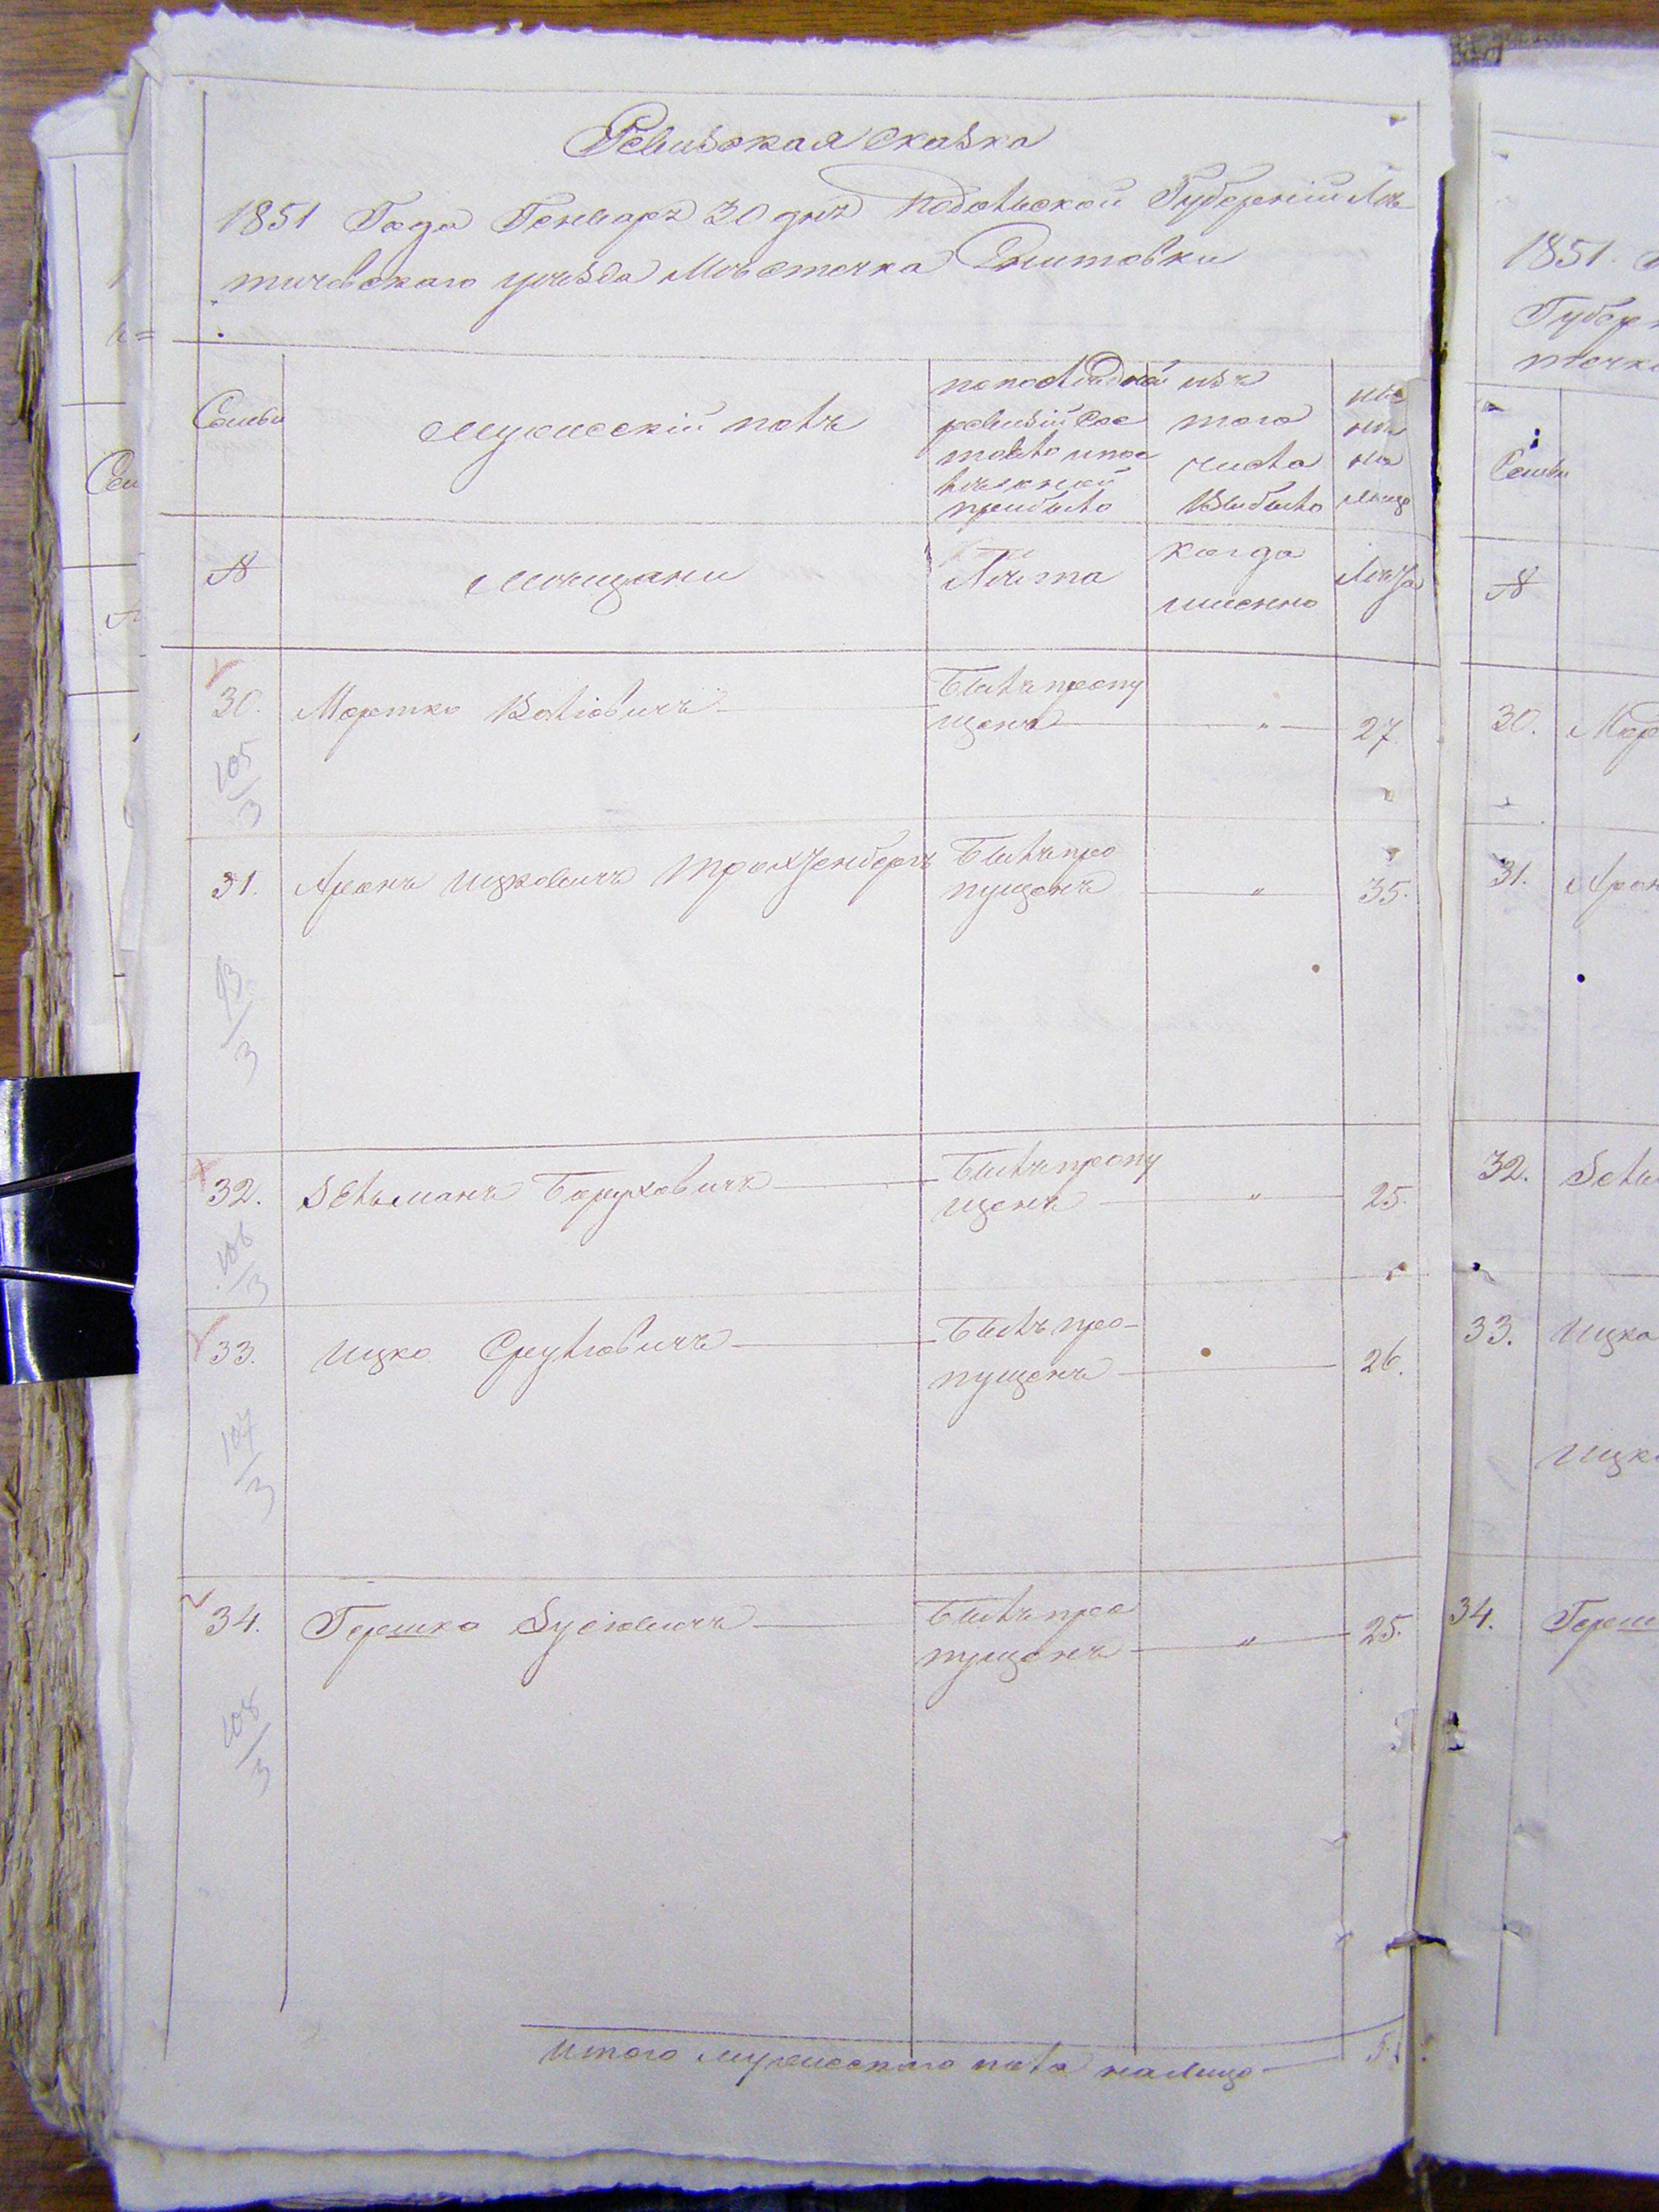 Ревизская сказка
1851 Года Генваря 30 дня Подольской Губерніи Ле-
тичевскаго уѣзда Мѣстечка Снитовки
Семьи
Мужескій полъ
по последней
ревизіи сос
тояло и пос
лѣ оной
прибыло
изъ
того
числа
выбыло
ны
не
на
лицо
№
Мещани
Лѣта
когда
именно
Лѣта
30. Мошко Волковичъ Былъ пропу
щенъ " 27.
105/3
31. Аронъ Ицковичъ Трахтенбергъ Былъ про
пущенъ " 35.
93/3
32. Зельманъ Боруховичъ Былъ пропу
щенъ " 25.
106/3
33. Ицко Сруліовичъ Былъ про-
пущенъ 26.
107/3
34. Гершко Зусіовичъ Былъ про
пущенъ " 25.
108/3
5
Итого мужескаго пола налицо 5.
1851.
Губер
течк
Семьи
№
30.
31. Арон
32. Зель
33. Ицко
Ицк
34. Герш